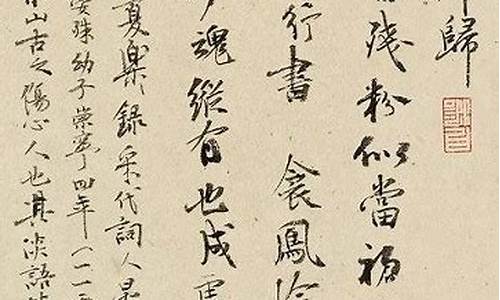 郎歸
殘粉似當初
行書 衾鳳冷
魂縱有也成虛
夏樂錄宋代詞人晏
晏殊幼子崇寧四年（一一
山古之傷心人也其淡語